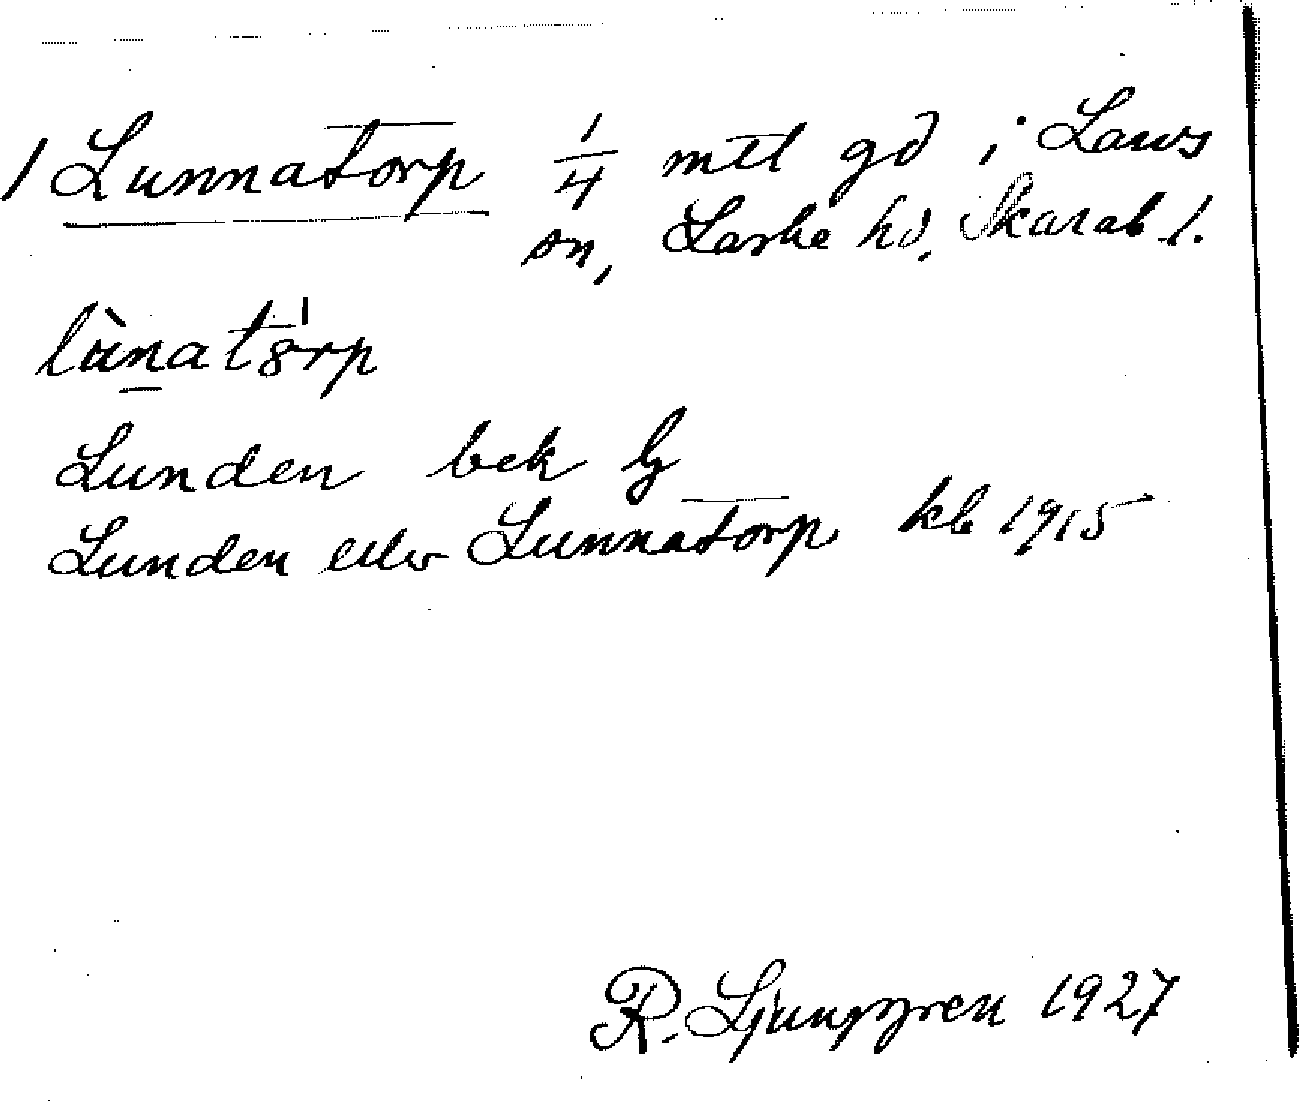 1 Lunnatorp 1/4 mtl gd i Lavs
sn, Laske hd, Skarab l.
lùnatȣ́rp
Lunden bek
Lunden eller Lunnatorp kb 1915
R. Ljunggren 1927